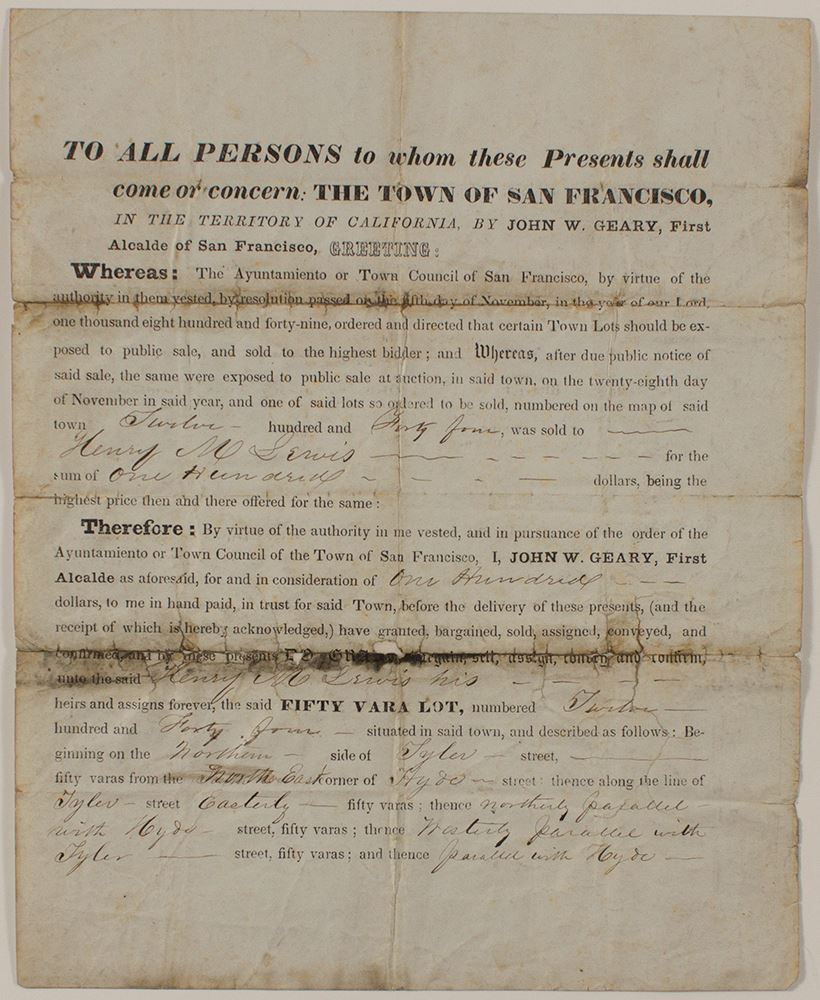 TO ALL PERSONS to whom these Presents shall
come or concern: THE TOWN OF SAN FRANCISCO,
IN THE TERRITORY OF CALIFORNIA, BY JOHN W. GEARY, First
Alcalde of San Francisco, GREETING:
Whereas: The Ayuntamiento or Town Council of San Francisco, by virtue of the
authority in them vested, by resolution passed on the fifth day of November, in the year of our Lord,
one thousand eight hundred and forty-nine, ordered and directed that certain Town Lots should be ex-
posed to public sale, and sold to the highest bidder; and Whereas, after due public notice of
said sale, the same were exposed to public sale at auction, in said town, on the twenty-eighth day
of November in said year, and one of said lots so ordered to be sold, numbered on the map of said
town Twelve — hundred and Forty four, was sold to ———
Henry M Lewis — — — — — — — for the
sum of One Hundred — — — — dollars, being the
highest price then and there offered for the same:
Therefore: By virtue of the authority in me vested, and in pursuance of the order of the
Ayuntamiento or Town Council of the Town of San Francisco, I, JOHN W. GEARY, First
Alcalde as aforesaid, for and in consideration of One Hundred — — —
dollars, to me in hand paid, in trust for said Town, before the delivery of these presents, (and the
receipt of which is hereby acknowledged,) have granted, bargained, sold, assigned, conveyed, and
confirmed, and by these presents DO sell, assign, convey and confirm,
unto the said Henry M Lewis his — — — —
heirs and assigns forever, the said FIFTY VARA LOT, numbered Twelve —
hundred and Forty four — situated in said town, and described as follows: Be-
ginning on the Northern — side of Tyler — street, ———
fifty varas from the North East corner of Hyde — street: thence along the line of
Tyler — street Easterly — fifty varas; thence northerly parallel —
with Hyde — street, fifty varas; thence Westerly parallel with
Tyler — — street, fifty varas; and thence parallel with Hyde —